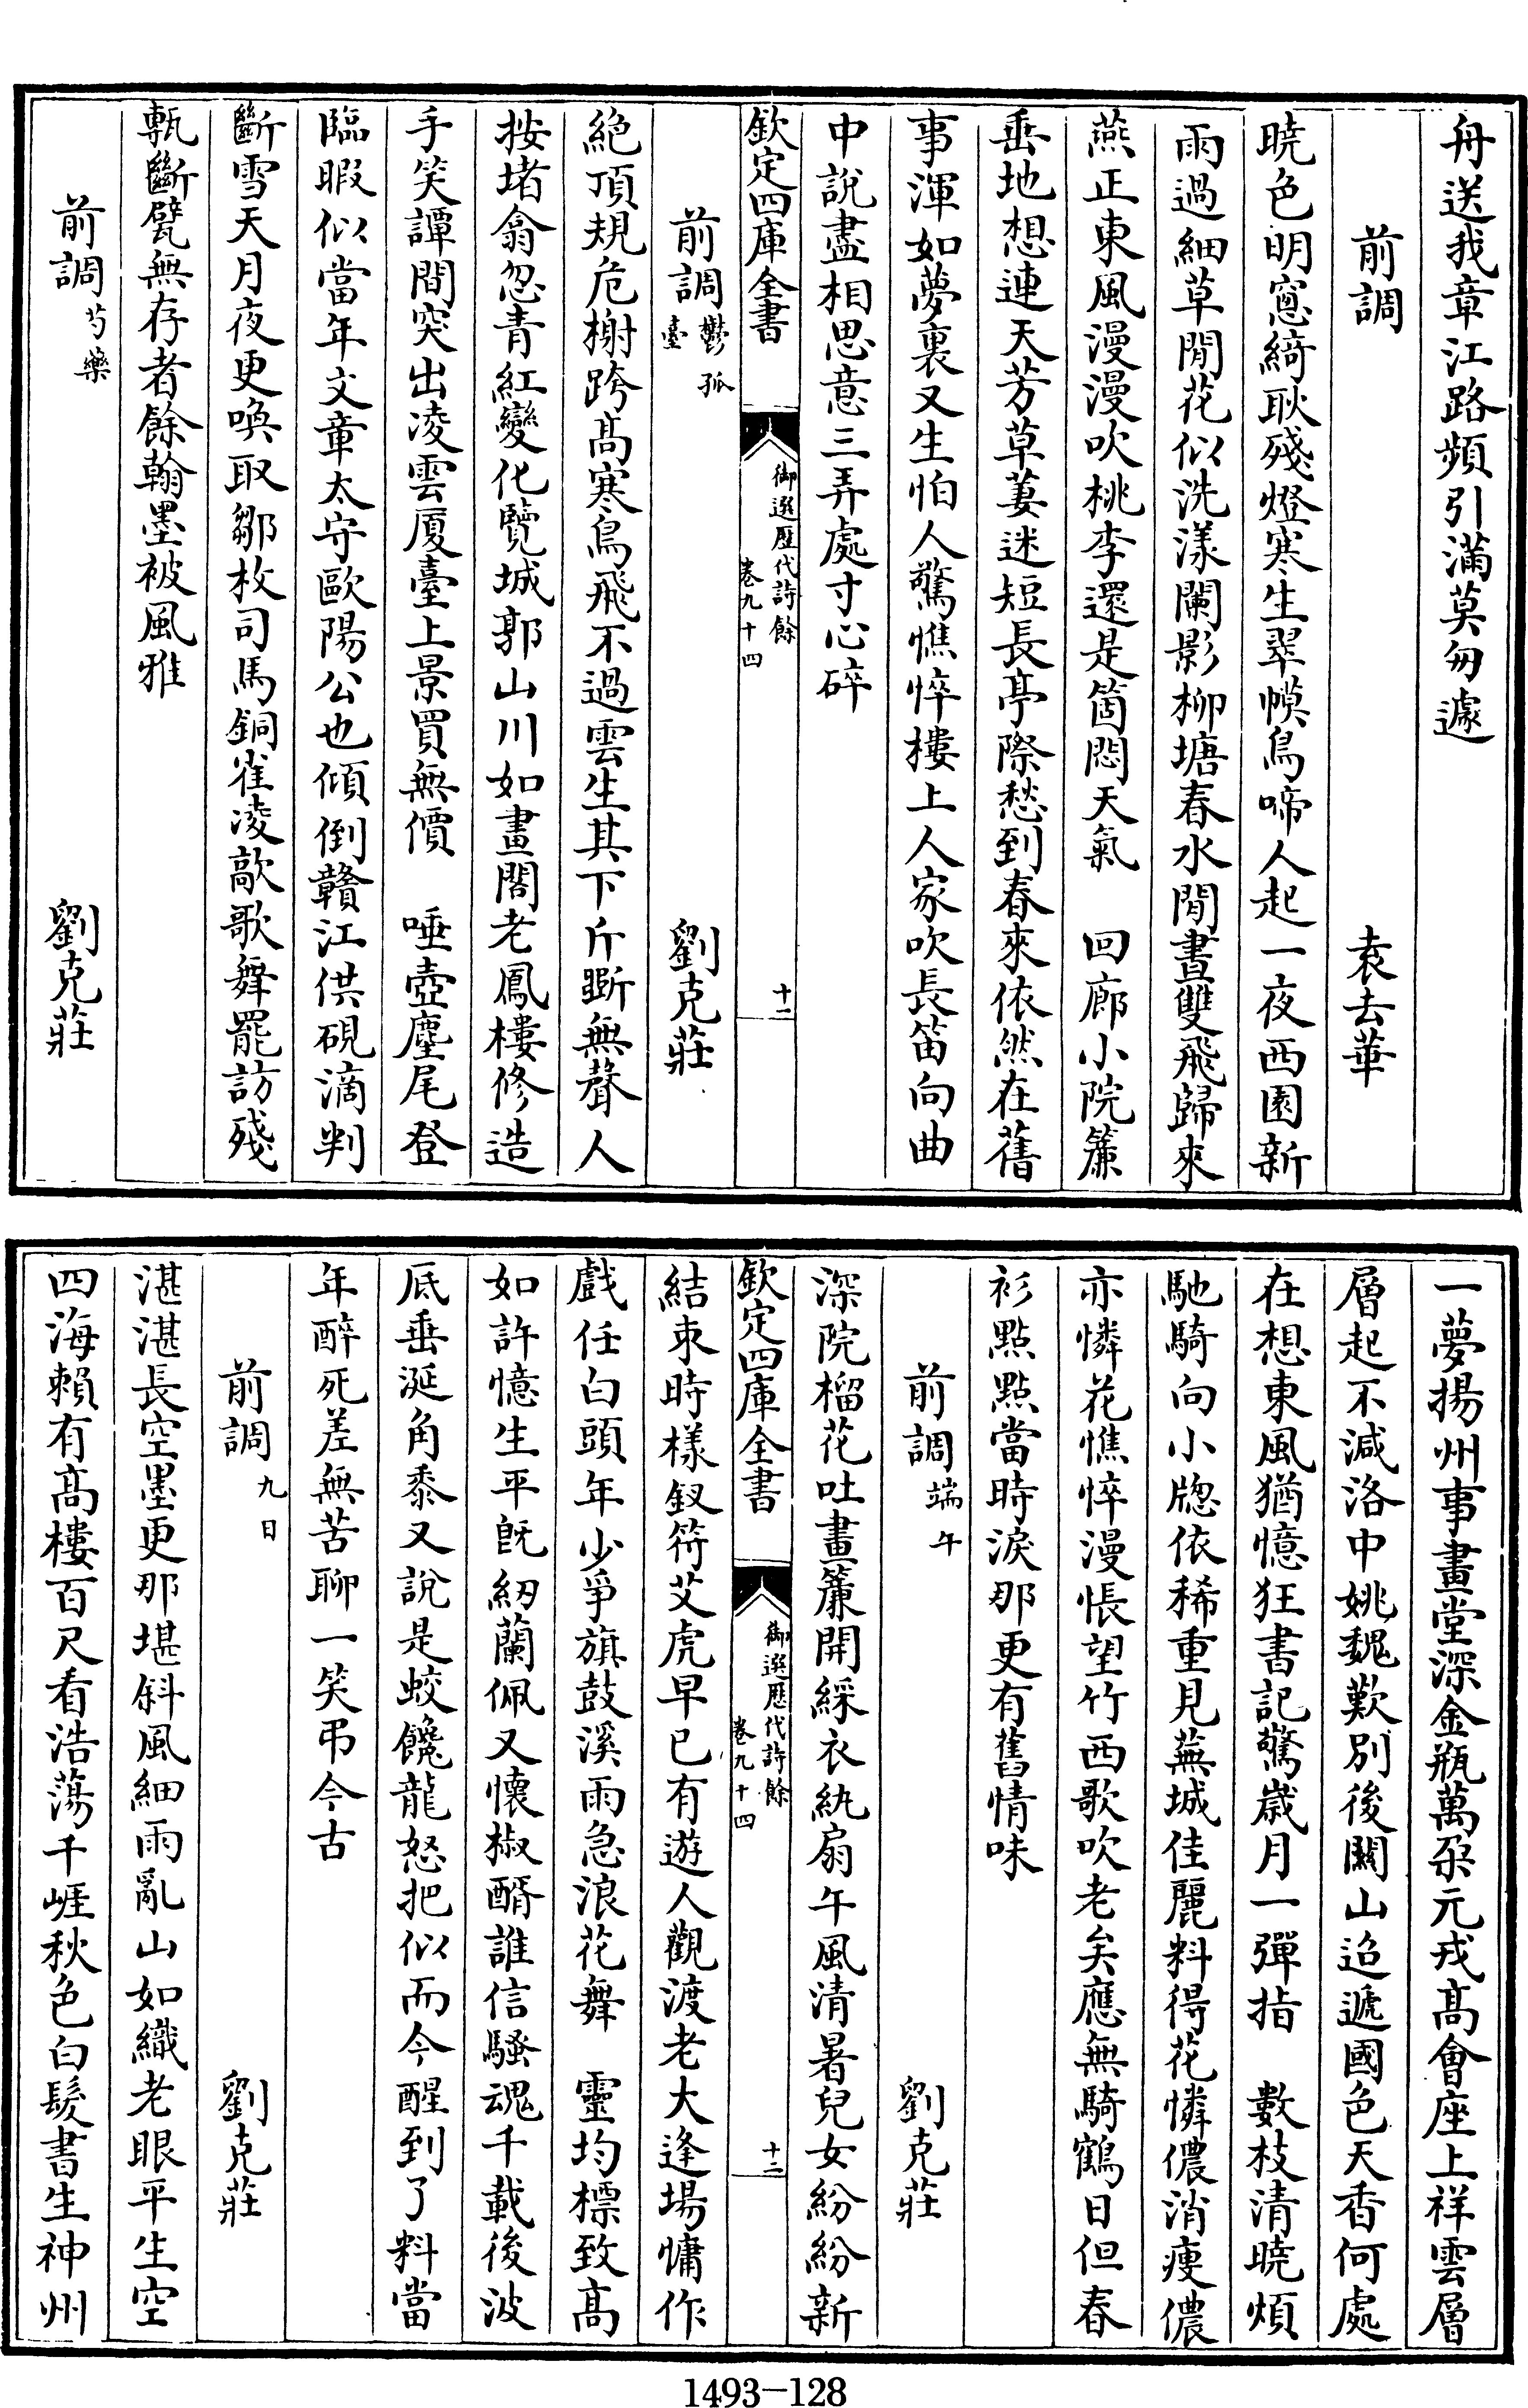 舟送我章江路頻引滿莫匆遽
前調　袁去華
曉色明窻綺耿殘燈寒生翠幙鳥啼人起一夜西園新
雨過細草閒花似洗漾闌影柳塘春水閒晝雙飛歸來
燕正東風漫漫吹桃李還是箇悶天氣　回廊小院簾
垂地想連天芳草萋迷短長亭際愁到春來依然在舊
事渾如夢裏又生怕人驚憔悴樓上人家吹長笛向曲
中說盡相思意三弄處寸心碎
欽定四庫全書　御選歷代詩餘　卷九十四　十一
前調鬱孤臺　劉克莊
絶頂規危榭跨髙寒鳥飛不過雲生其下斤斲無聲人
按堵翕忽青紅變化覽城郭山川如畫閣老鳳樓修造
手笑譚間突出凌雲厦臺上景買無價　唾壺麈尾登
臨暇似當年文章太守歐陽公也傾倒贛江供硯滴判
斷雪天月夜更喚取鄒枚司馬銅雀凌歊歌舞罷訪殘
甎斷甓無存者餘翰墨被風雅
前調芍藥　劉克莊
一夢揚州事畫堂深金瓶萬朶元戎髙會座上祥雲層
層起不減洛中姚魏歎别後關山迢遞國色天香何處
在想東風猶憶狂書記驚歲月一彈指　數枝清曉煩
馳騎向小牕依稀重見蕪城佳麗料得花憐儂消瘦儂
亦憐花憔悴漫悵望竹西歌吹老矣應無騎鶴日但春
衫點點當時淚那更有舊情味
前調端午　劉克莊
深院榴花吐畫簾開綵衣紈扇午風清暑兒女紛紛新
欽定四庫全書　御選歷代詩餘　卷九十四　十二
結束時樣釵符艾虎早已有遊人觀渡老大逢場慵作
戲任白頭年少爭旗鼓溪雨急浪花舞　靈均標致髙
如許憶生平旣紉蘭佩又懷椒醑誰信騷魂千載後波
底垂涎角黍又說是蛟饞龍怒把似而今醒到了料當
年醉死差無苦聊一笑弔今古
前調九日　劉克莊
湛湛長空墨更那堪斜風細雨亂山如織老眼平生空
四海賴有髙樓百尺看浩蕩千崕秋色白髮書生神州
1493—128